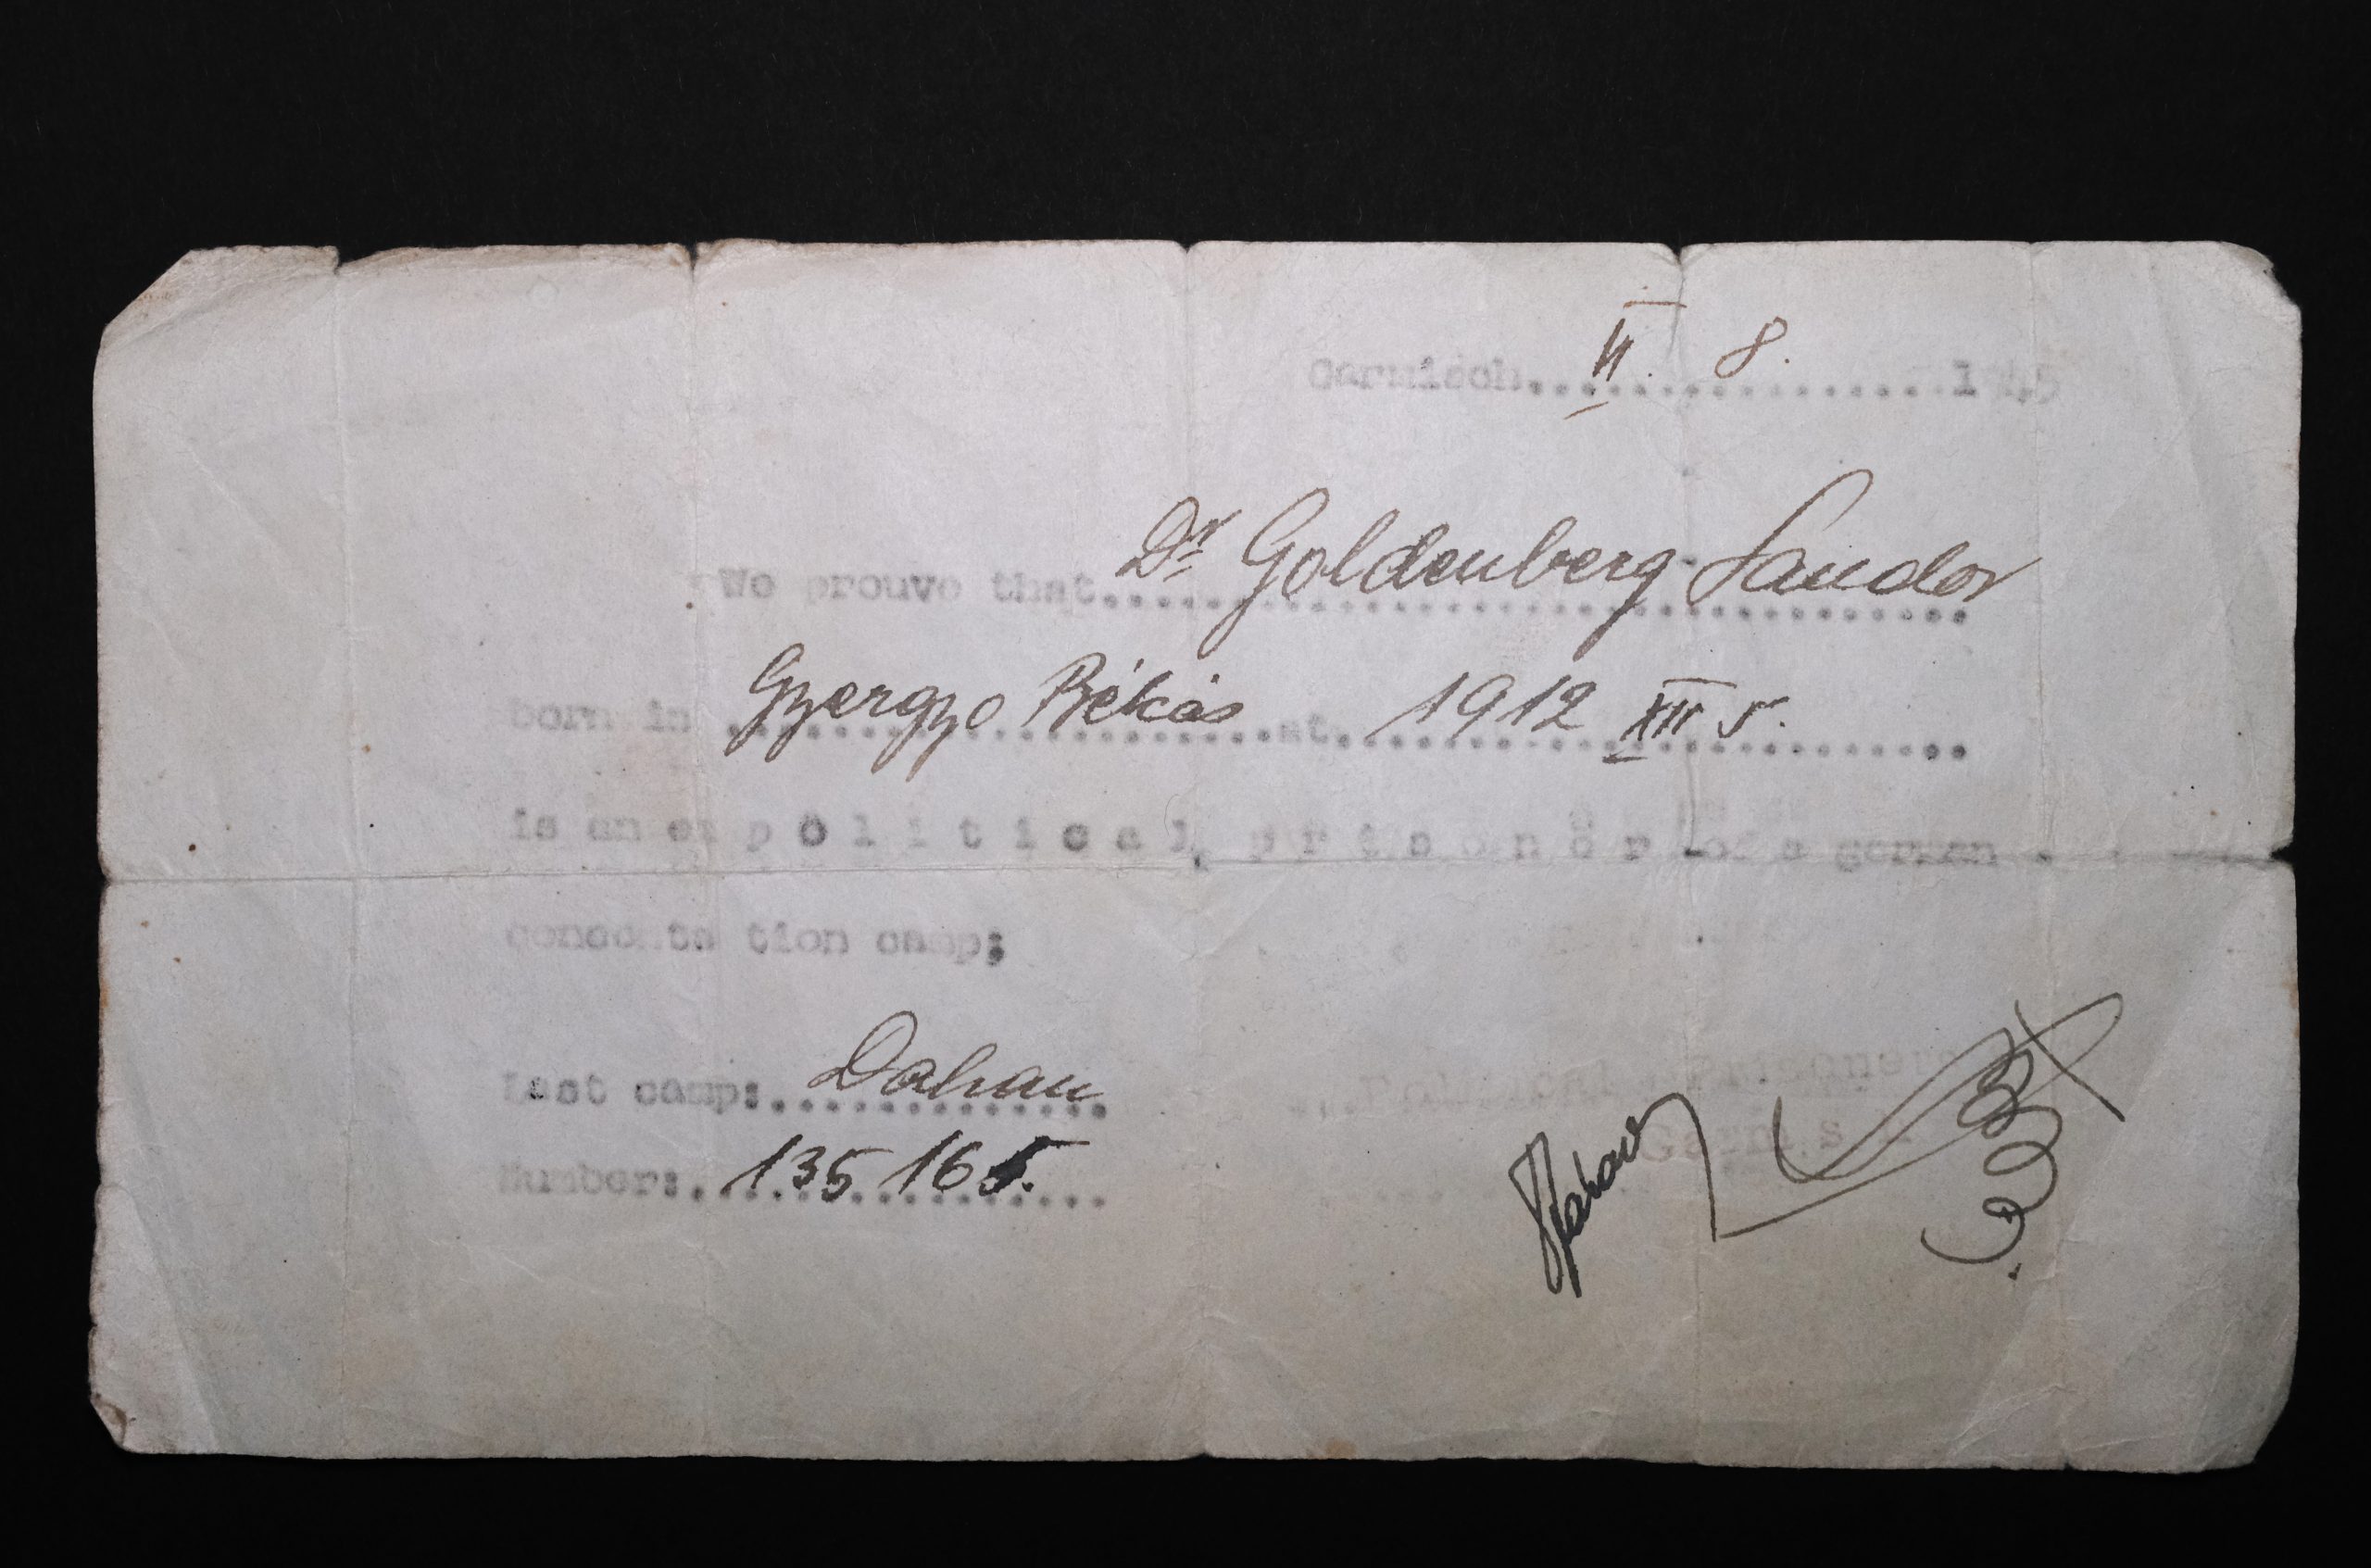 Garmisch................ VI. 8. 1945
We prouve that.... Dr Goldenberg Sandor
born in .... Gyergyo Békás ....at.... 1912 XII 5.
is an ex p o l i t i c a l p r i s o n e r of a german
concentration camp;
Last camp:.... Dahau
Number:.... 135165.
Political Prisoners
Garmisch